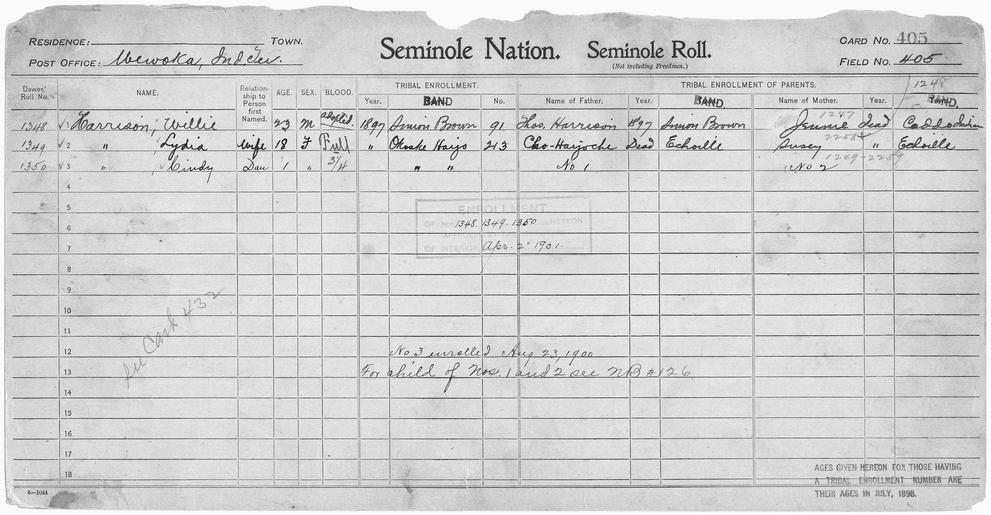 RESIDENCE: TOWN. Seminole Nation. Seminole Roll. CARD No. 405
POST OFFICE: Wewoka, Ind Ter. (Not including Freedmen.) FIELD No. 405
1248
Dawes' Roll No. NAME. Relationship to Person first Named. AGE. SEX. BLOOD. TRIBAL ENROLLMENT. TRIBAL ENROLLMENT OF PARENTS.
Year. BAND No. Name of Father. Year. BAND. Name of Mother. Year. BAND.
1348 1 Harrison, Willie 23 M adopted 1897 Simion Brown 91 Thos. Harrison 1897 Simion Brown 1247 Jennie Dead Caddo Indian
1349 2 " Lydia Wife 18 F Full " Okoske Harjo 213 Cho-Haijoche Dead Echoille Susey " Echoille
1350 3 " Cindy Dau 1 " 3/4 " " No 1 No 2
4
5
ENROLLMENT
6 OF NOS. 1348. 1349. 1350 HEREON
7 OF INTERIOR Apr. 2" 1901.
8
9
10
11
See Card 432
12 No 3 enrolled Aug 23, 1900
13 For child of Nos. 1 and 2 see NB # 126
14
15
16
17
18
AGES GIVEN HEREON FOR THOSE HAVING
A TRIBAL ENROLLMENT NUMBER ARE
THEIR AGES IN JULY, 1898.
6—1044